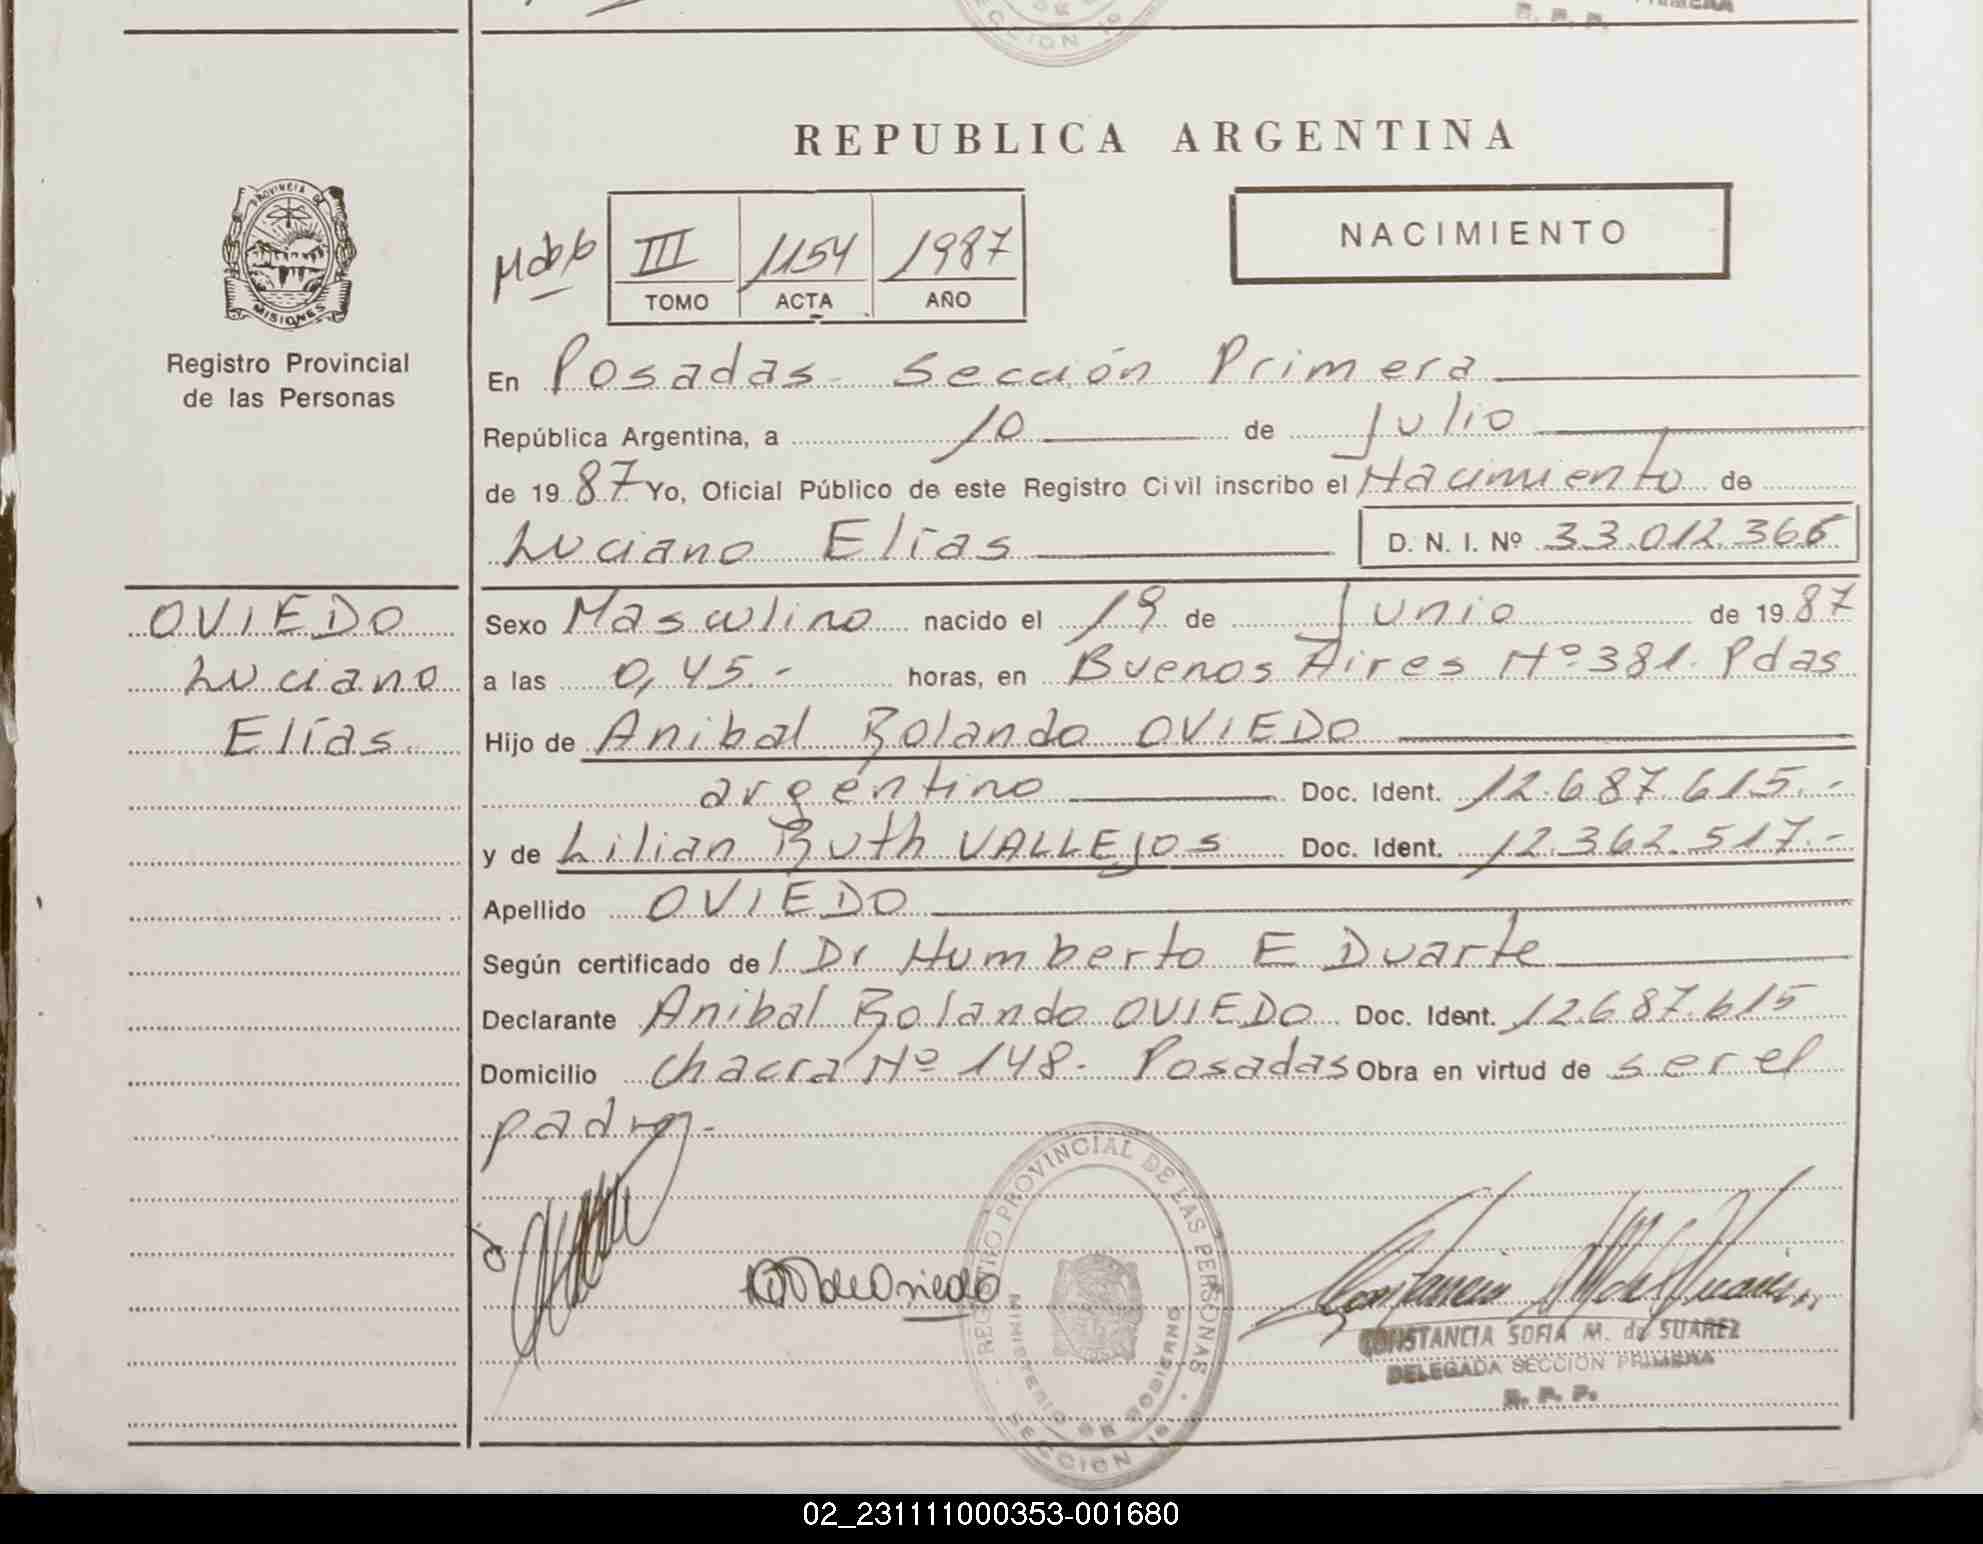 SECCION 1ª
R. P. P.
REPUBLICA ARGENTINA
PROVINCIA DE
MISIONES
Registro Provincial
de las Personas
III 1154 1987
TOMO ACTA AÑO
NACIMIENTO
En Posadas - Sección Primera
República Argentina, a 10 de Julio
de 1987 Yo, Oficial Público de este Registro Civil inscribo el Nacimiento de
Luciano Elías D. N. I. Nº 33.012.366
OVIEDO
Luciano
Elías.
Sexo Masculino nacido el 19 de Junio de 1987
a las 0,45.- horas, en Buenos Aires Nº 381. Pdas
Hijo de Anibal Rolando OVIEDO
argentino Doc. Ident. 12.687.615.-
y de Lilian Ruth VALLEJOS Doc. Ident. 12.362.517.-
Apellido OVIEDO
Según certificado del Dr Humberto E Duarte
Declarante Anibal Rolando OVIEDO Doc. Ident. 12.687.615
Domicilio Chacra Nº 148. Posadas Obra en virtud de ser el
padre.-
REGISTRO PROVINCIAL DE LAS PERSONAS
MINISTERIO DE GOBIERNO
SECCION 1ª
CONSTANCIA SOFIA M. de SUAREZ
DELEGADA SECCIÓN PRIMERA
R. P. P.
02_231111000353-001680